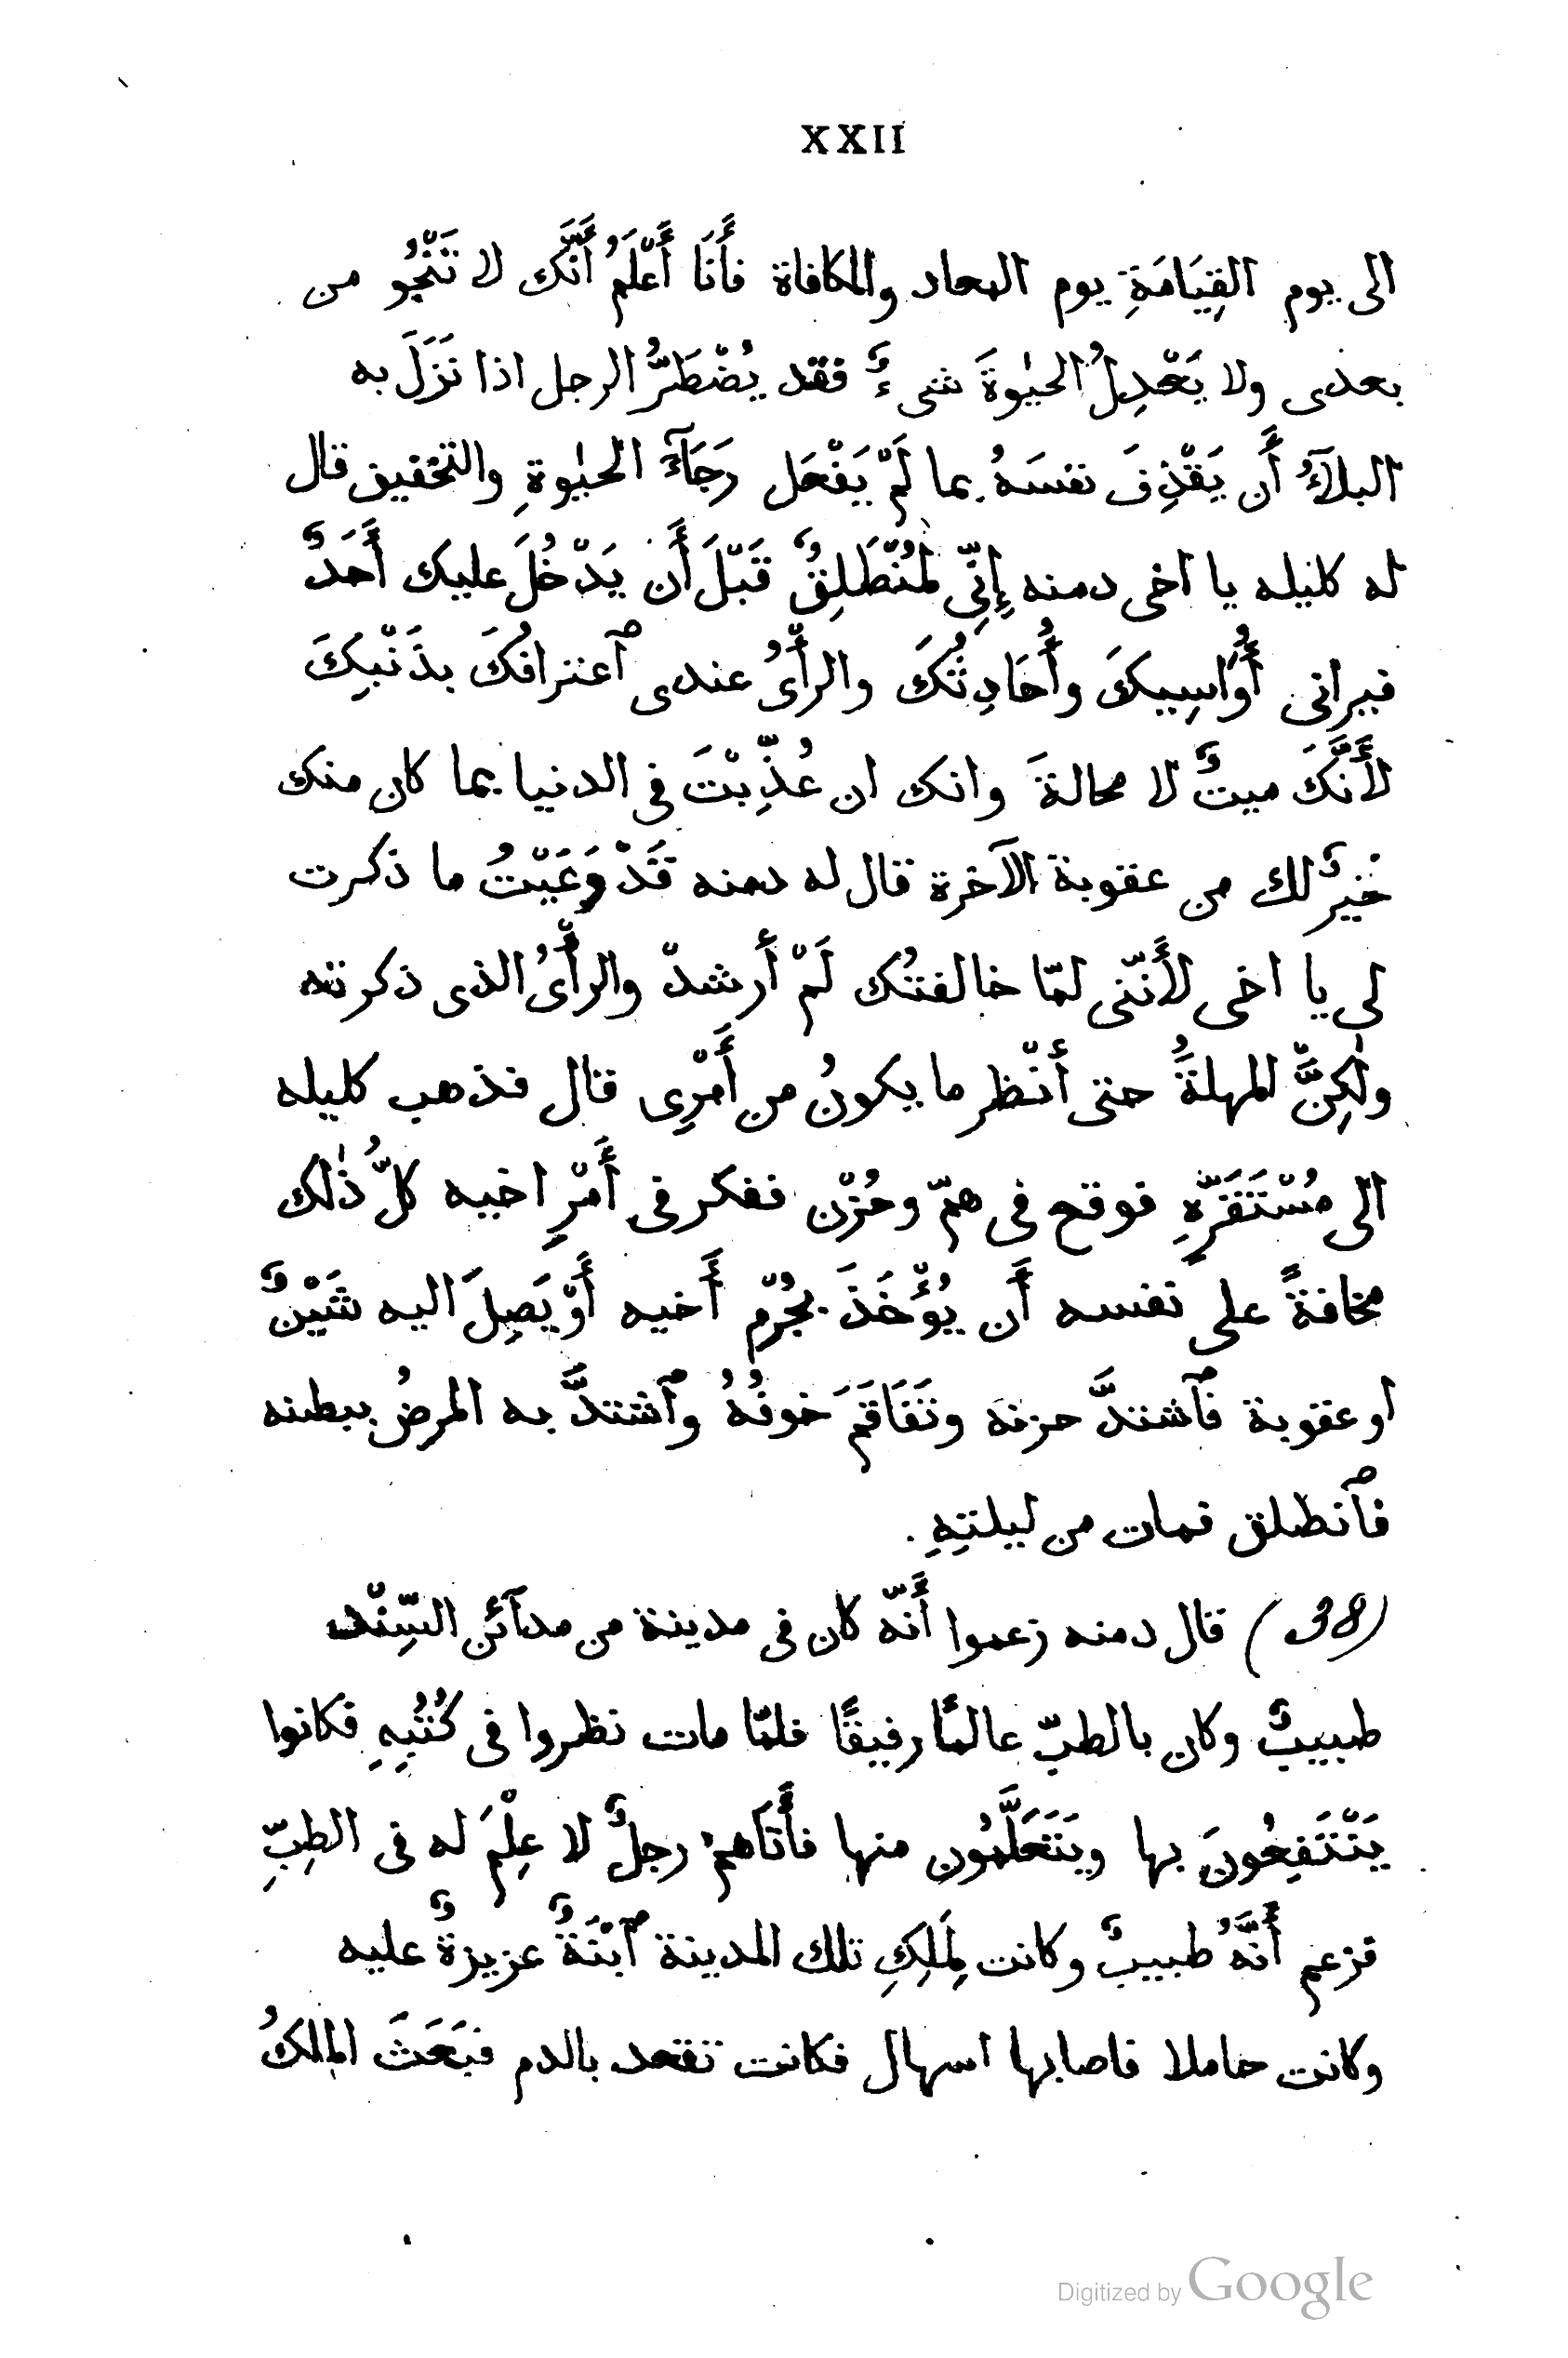 XXII
الى يوم القِيَامَةِ يوم المعاد والمكافاة فأَنَا أَعْلَمُ أَنَّك لا تَنْجُو من
بعدى ولا يَعْدِلُ الحيٰوةَ شىءٌ فقد يُضْطَرُّ الرجل اذا نَزَلَ به
البلآءُ أَن يَقْذِفَ نفسَهُ بما لَمْ يَفْعَل رَجَآءَ الحيٰوةِ والتخفيف قال
له كليله يا اخى دمنه إِنِّى لَمُنْطَلِقٌ قَبْلَ أَن يَدْخُلَ عليك أَحَدٌ
فيرانى أُوَاسِيكَ وأُحَادِثُكَ والرأْىُ عندى ٱعترافُكَ بذَنْبِكَ
لأَنَّكَ ميتٌ لا محالةَ وانك ان عُذِّبْتَ فى الدنيا بما كان منك
خيرٌ لك من عقوبة الآخرة قال له دمنه قَدْ وَعَيْتُ ما ذكرت
لى يا اخى لأَنّنى لمّا خالفتُك لَمْ أَرشدْ والرأْىُ الذى ذكرته
ولٰكِنَّ المهلةَُ حتى أَنْظر ما يكونُ من أَمْرِى قال فذهب كليله
الى مُسْتَقَرِّهِ فوقع فى همّ وحُزْن ففكر فى أَمْرِ اخيه كلُّ ذٰلك
مخافةً على نفسه أَن يُؤْخَذَ بجُرْم أَخيه أَوْ يَصِلَ اليه شَيْنٌ
او عقوبة فٱشتدَّ حزنه وتَفَاقَمَ خوفُهُ وٱشتدَّ به المرضُ ببطنه
فٱنطلق فمات من ليلتِهِ .
(38) قال دمنه زعموا أَنّه كان فى مدينة من مدآئن السِّنْد
طبيبٌ وكان بالطبّ عالمًا رفيقًا فلمّا مات نظروا فى كُتُبِهِ فكانوا
يَنْتَفِعُونَ بها ويَتَعَلَّمُون منها فأَتَاهم رجلٌ لا عِلْمَ له فى الطِبِّ
فزعم أَنَّهُ طبيبٌ وكانت لِمَلِكِ تلك المدينة ٱبْنَةٌ عزيزةٌ عليه
وكانت حاملا فاصابها اسهال فكانت تقعد بالدم فبَعَثَ الملكُ
Digitized by Google